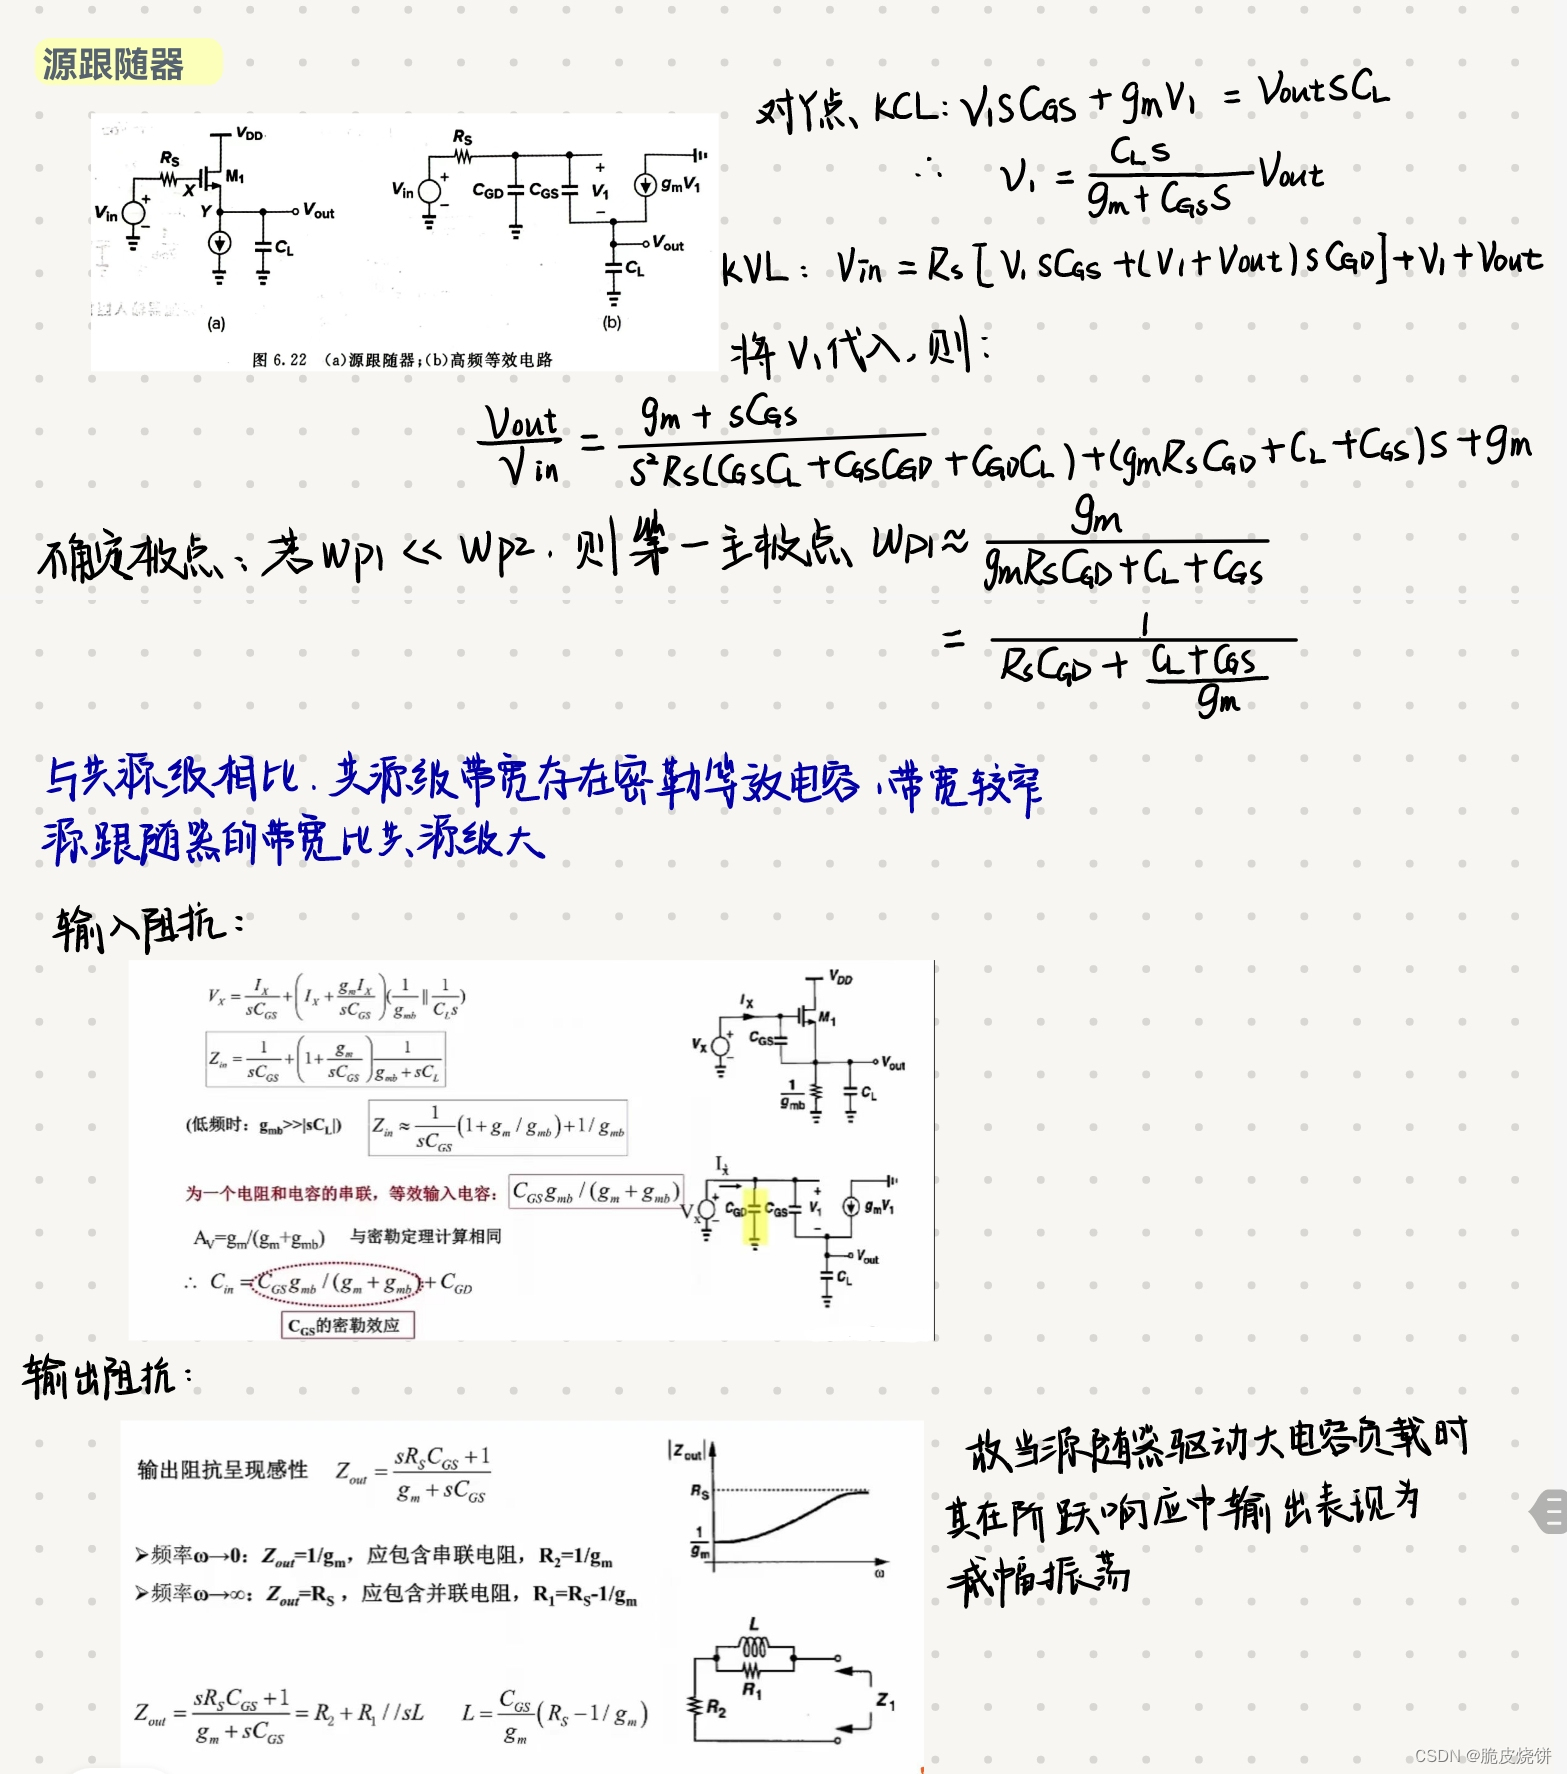 源跟随器
对Y点、KCL: V₁SC_GS + g_mV₁ = VoutSC_L
∴ V₁ = C_L S / (g_m + C_GS S) Vout
V_DD
R_S
X
M₁
V_in
Y
V_out
C_L
(a)
R_S
V_in
C_GD
C_GS
+
V₁
−
g_mV₁
V_out
C_L
(b)
图 6.22 (a)源跟随器;(b)高频等效电路
KVL: Vin = Rs[V₁SC_GS + (V₁+Vout)SC_GD] + V₁ + Vout
将V₁代入,则:
Vout / Vin = (g_m + sC_GS) / (S²Rs(C_GSC_L + C_GSC_GD + C_GDC_L) + (g_mRsC_GD + C_L + C_GS)S + g_m)
不确定极点: 若Wp1 << Wp2, 则第一主极点、Wp1 ≈ g_m / (g_mRsC_GD + C_L + C_GS)
= 1 / (RsC_GD + (C_L + C_GS) / g_m)
与共源级相比,共源级带宽存在密勒等效电容,带宽较窄
源跟随器的带宽比共源级大
输入阻抗:
V_X = I_X / sC_GS + (I_X + g_mI_X / sC_GS)(1 / g_mb ∥ 1 / C_Ls)
Z_in = 1 / sC_GS + (1 + g_m / sC_GS) 1 / (g_mb + sC_L)
(低频时: g_mb>>|sC_L|) Z_in ≈ 1 / sC_GS (1 + g_m / g_mb) + 1 / g_mb
为一个电阻和电容的串联,等效输入电容: C_GS g_mb / (g_m + g_mb)
A_V=g_m/(g_m+g_mb) 与密勒定理计算相同
∴ C_in = C_GS g_mb / (g_m + g_mb) + C_GD
C_GS的密勒效应
V_DD
I_X
M₁
V_X
C_GS
V_out
1/g_mb
C_L
I_x
V_x
C_GD
C_GS
+
V₁
−
g_mV₁
V_out
C_L
输出阻抗:
输出阻抗呈现感性 Z_out = (sR_SC_GS + 1) / (g_m + sC_GS)
➢频率ω→0: Z_out=1/g_m, 应包含串联电阻, R₂=1/g_m
➢频率ω→∞: Z_out=R_S , 应包含并联电阻, R₁=R_S-1/g_m
Z_out = (sR_SC_GS + 1) / (g_m + sC_GS) = R₂ + R₁ // sL L = C_GS / g_m (R_S − 1 / g_m)
|Z_out|
R_S
1/g_m
ω
L
R₁
R₂
Z₁
故当源随器驱动大电容负载时
其在阶跃响应中输出表现为
减幅振荡
CSDN @脆皮烧饼